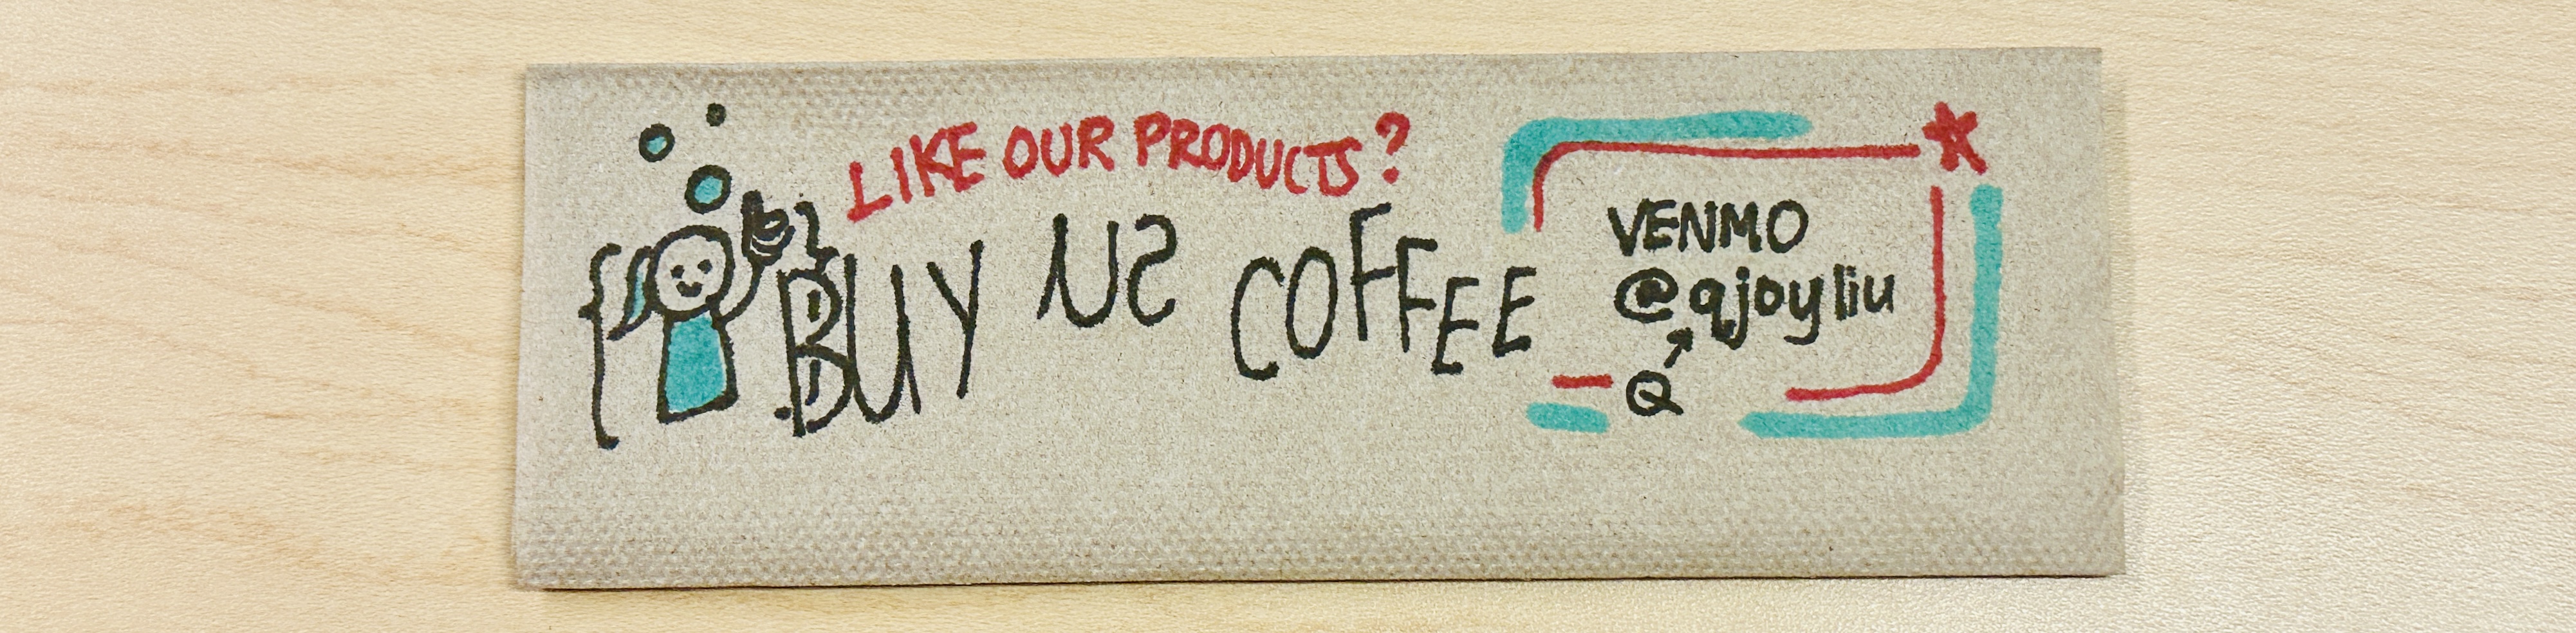 LIKE OUR PRODUCTS?
BUY US COFFEE
VENMO
@qjoyliu
Q